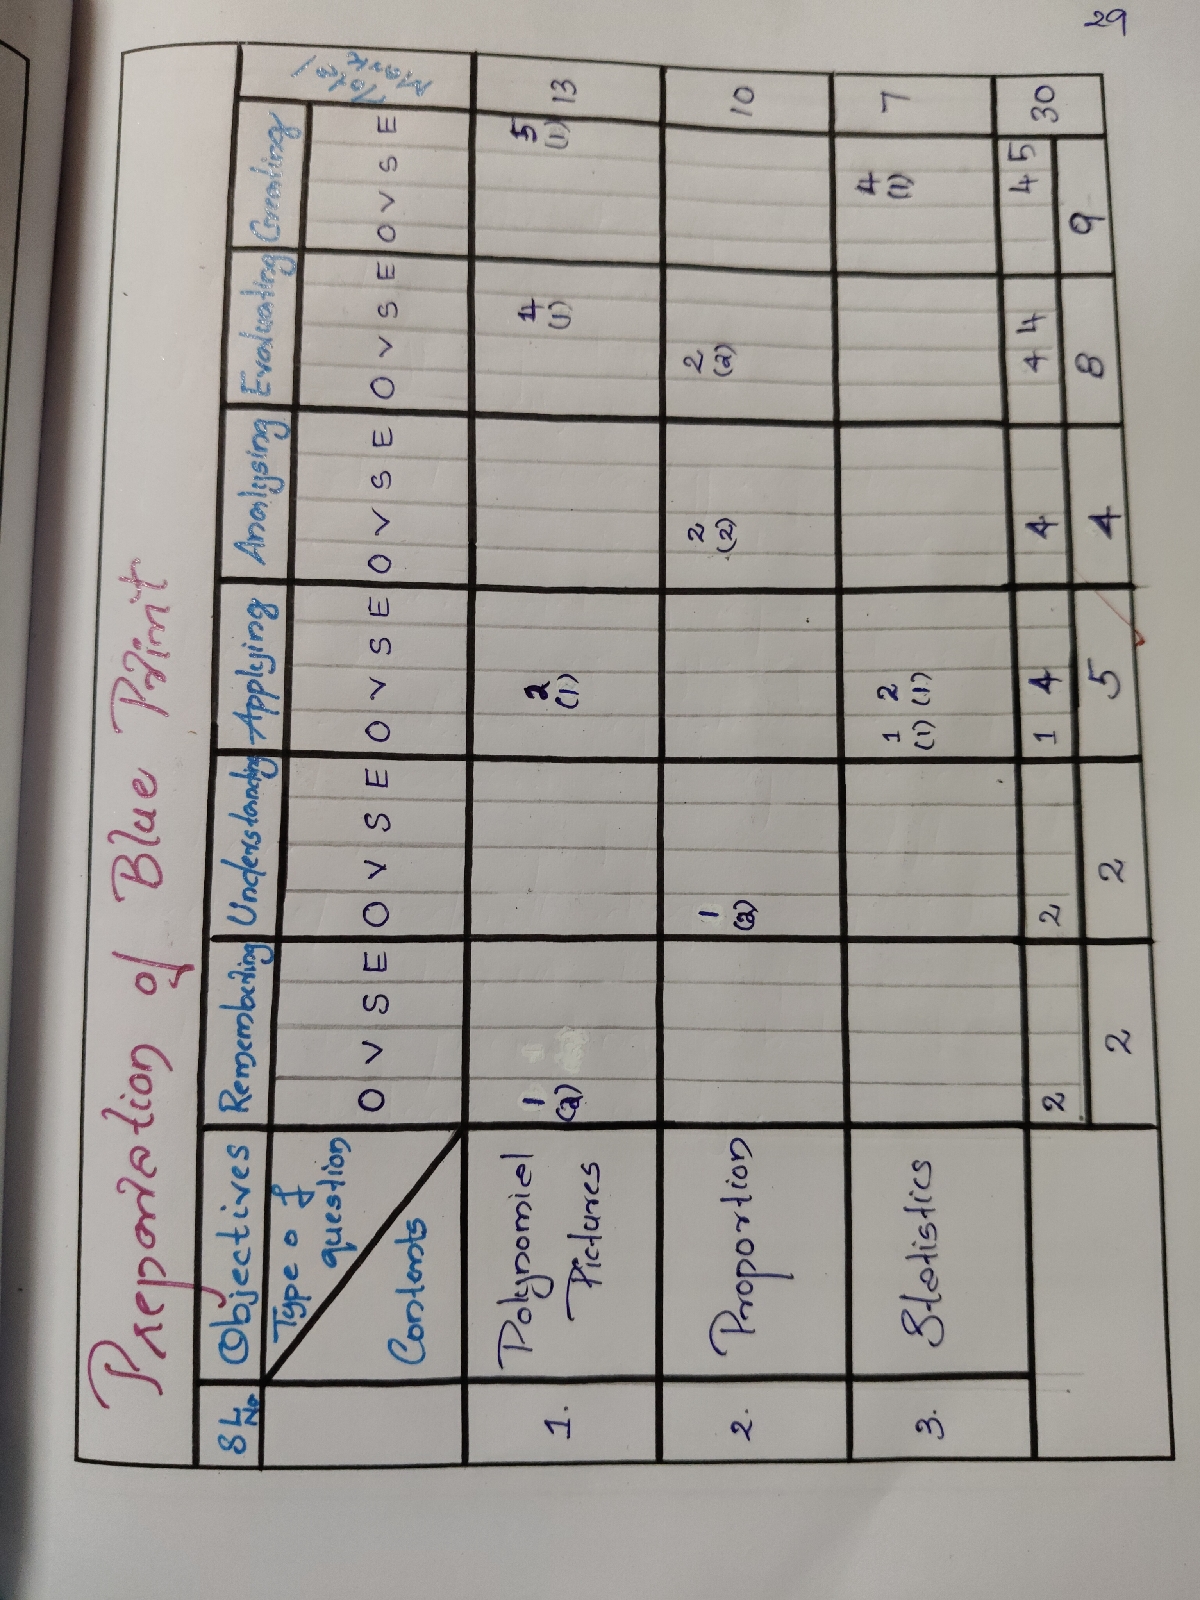 29
Preparation of Blue Print
Sl. No Objectives Remembering Understanding Applying Analysing Evaluating Creating Total Mark
Type of question
Contents
O V S E O V S E O V S E O V S E O V S E O V S E
1. Polynomial Pictures 1 (2) 2 (1) 4 (1) 5 (1) 13
2. Proportion 1 (2) 2 (2) 2 (2) 10
3. Statistics 1 (1) 2 (1) 4 (1) 7
2 2 1 4 4 4 4 4 5 30
2 2 5 4 8 9